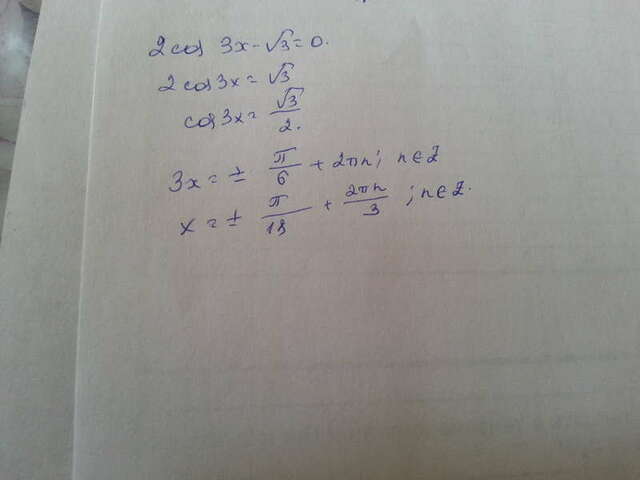 2cos 3x-√3=0.
2cos3x=√3
cos3x=√3/2.
3x=±π/6+2πn; n∈Z
x=±π/18+2πn/3; n∈Z.